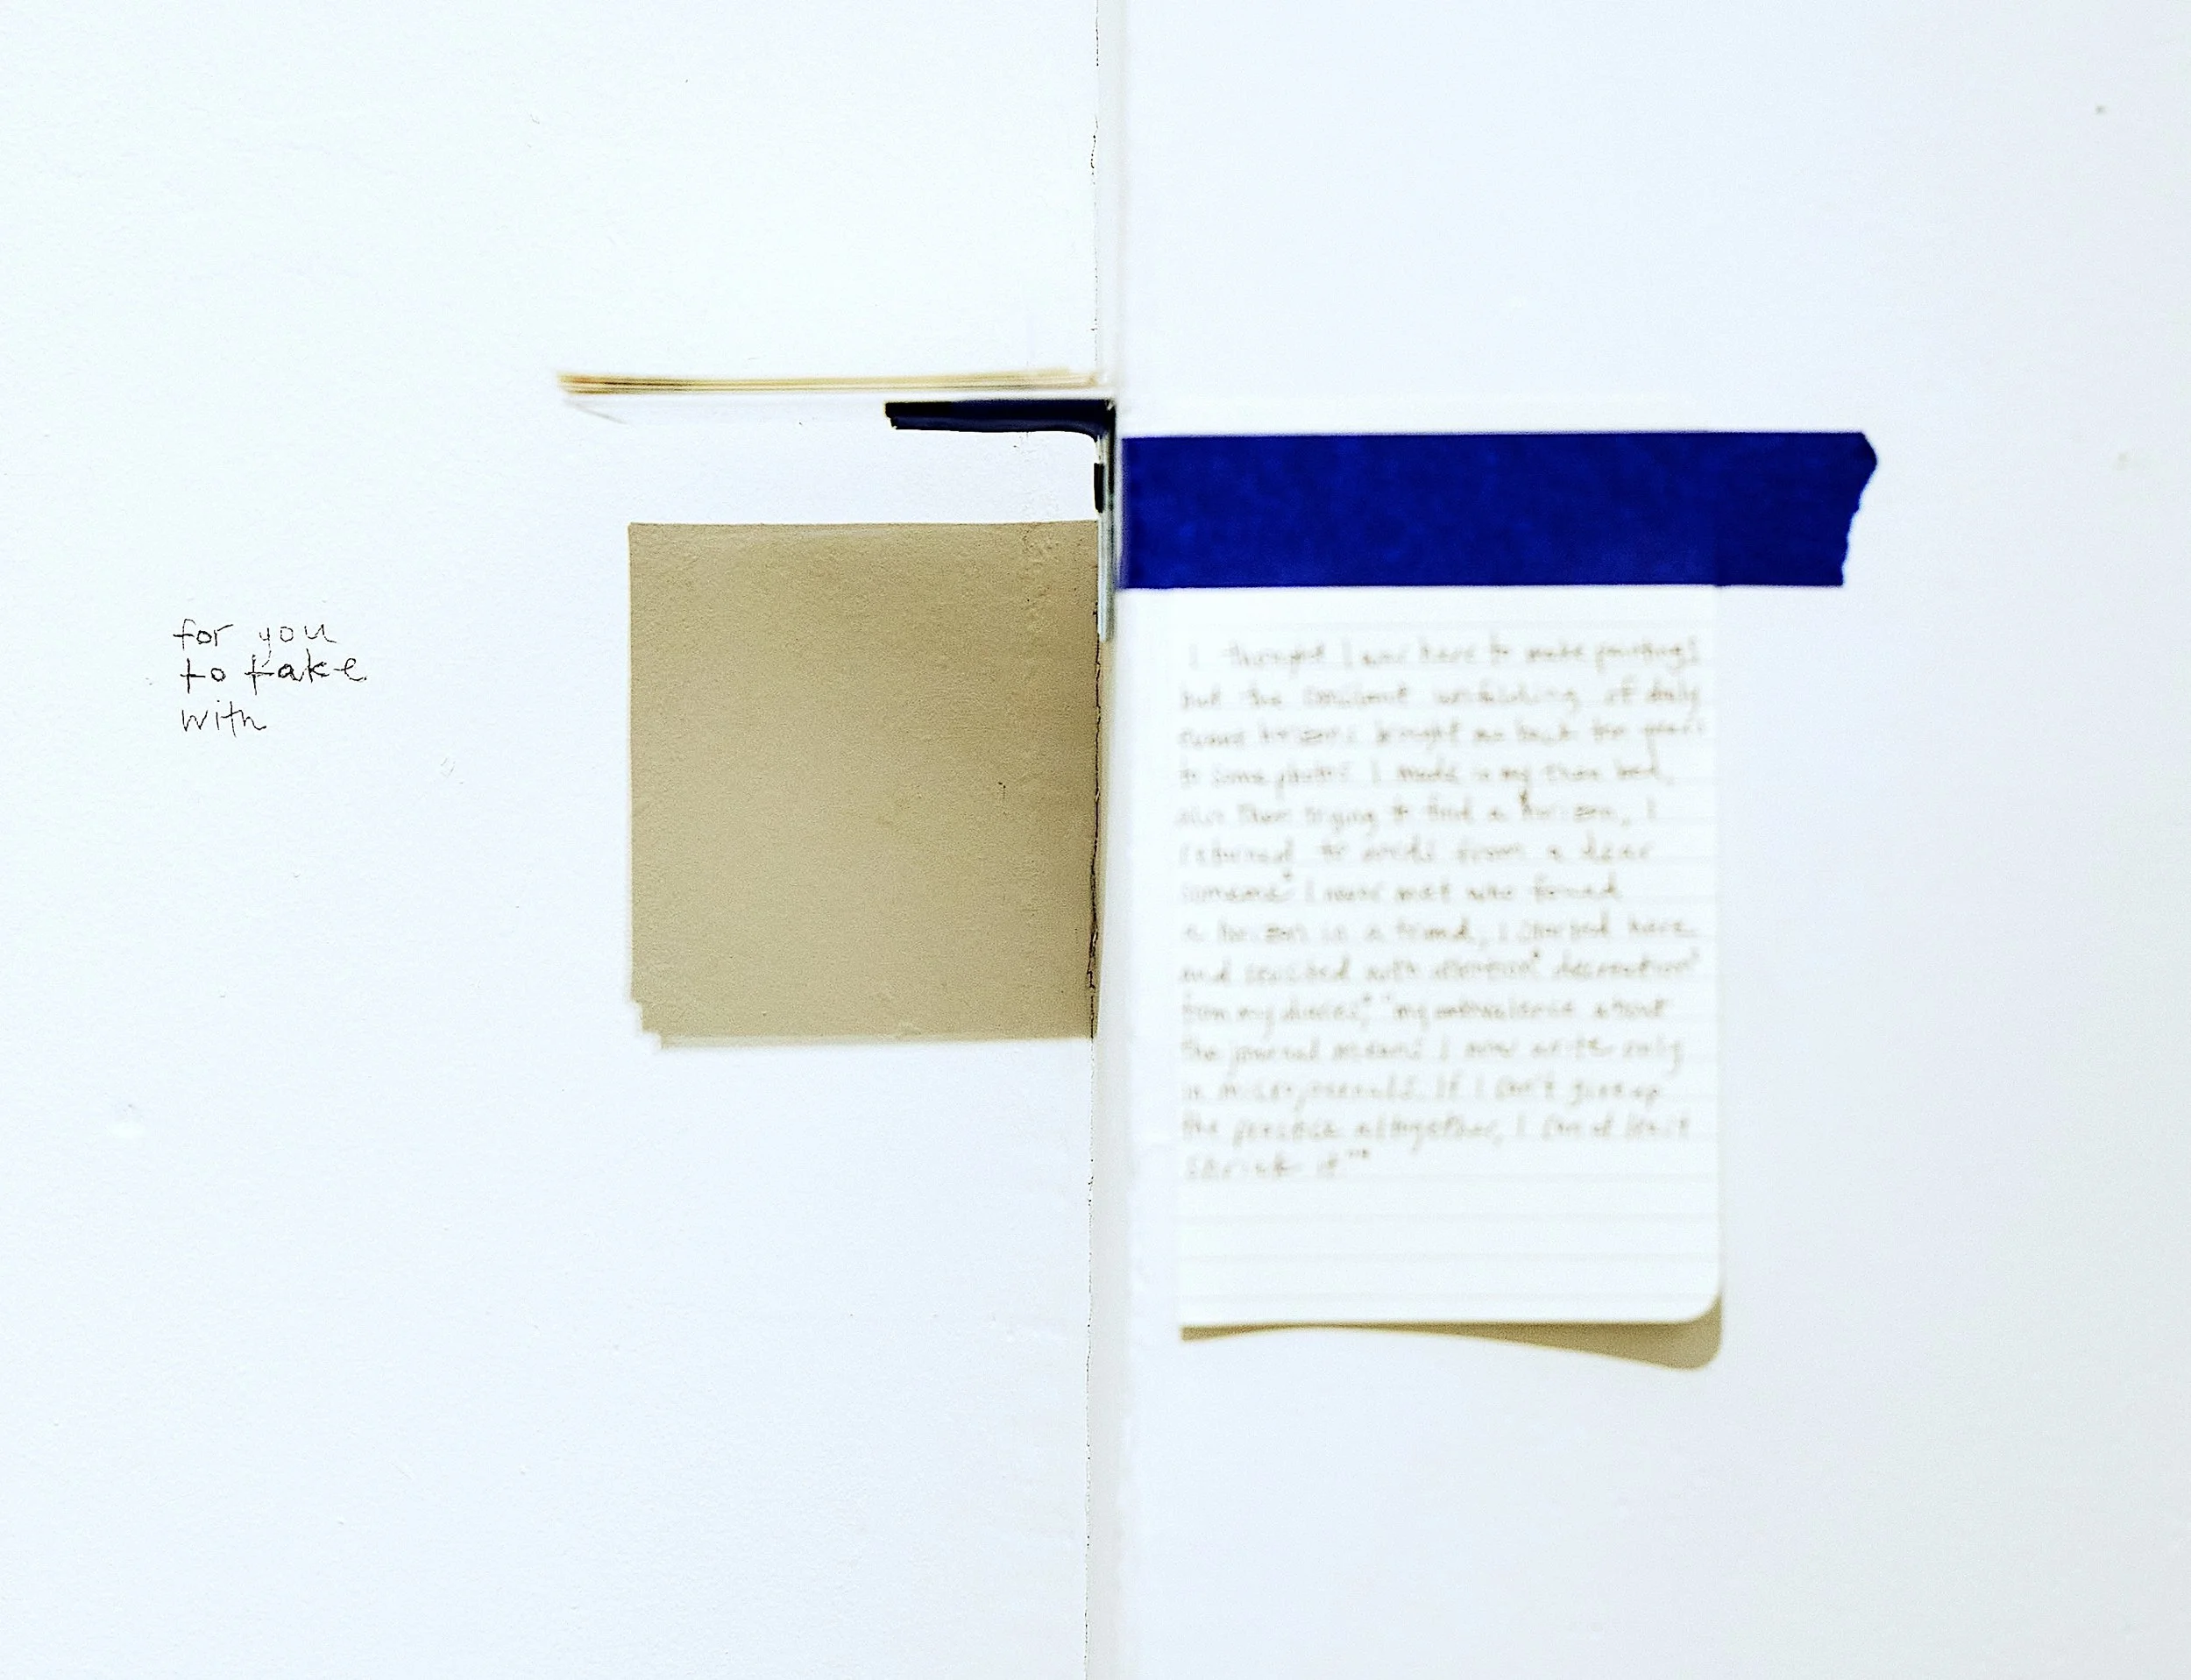 for you
to take
with
I thought I was here to make paintings
but the constant unfolding of daily
horizons brought me back ten years
to some photos I made in my then bed,
also then trying to find a horizon, I
returned to words from a dear
someone I never met who found
a horizon in a friend, I started here
and with
from my diaries, "my ambivalence about
the journal means I now write only
in If I can't give up
the practice altogether, I can at least
shrink it"